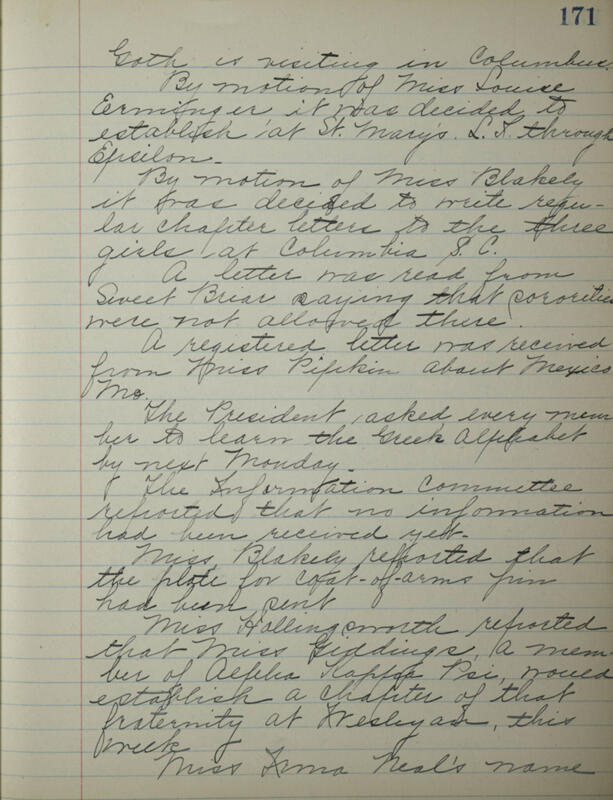 171
Goth is visiting in Columbus.
By motion of Miss Louise
Erminger it was decided to
establish at St. Mary's. L.I. through
Epsilon.
By motion of Miss Blakely
it was decided to write regu-
lar chapter letters to the three
girls at Columbia S. C.
A letter was read from
Sweet Briar saying that sororities
were not allowed there.
A registered letter was received
from Miss Pipkin about Mexico
Mo.
The President asked every mem
ber to learn the Greek Alphabet
by next Monday.
The Information Committee
reported that no information
had been received yet.
Miss Blakely reported that
the plate for coat-of-arms pin
had been sent
Miss Hollingsworth reported
that Miss Giddings, a mem-
ber of Alpha Kappa Psi, would
establish a chapter of that
fraternity at Wesleyan, this
week
Miss Irma Neal's name